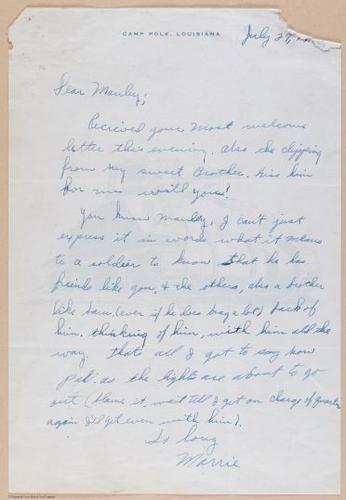 CAMP POLK, LOUISIANA
July 27,
Dear Manley;
Recieved your most welcome
letter this evening. also the clipping
from my sweet Brother. Kiss him
for me will you?
You know Manley, I can't just
express it in words what it means
to a soldier to know that he has
friends like you, & the others, also a brother
like Sam, (even if he does brag a lot) back of
him, thinking of him, with him all the
way. thats all I got to say now
Pal. as the lights are about to go
out (blame it, wait till I get on charge of quarters
again I'll get even with him).
So long
Morrie